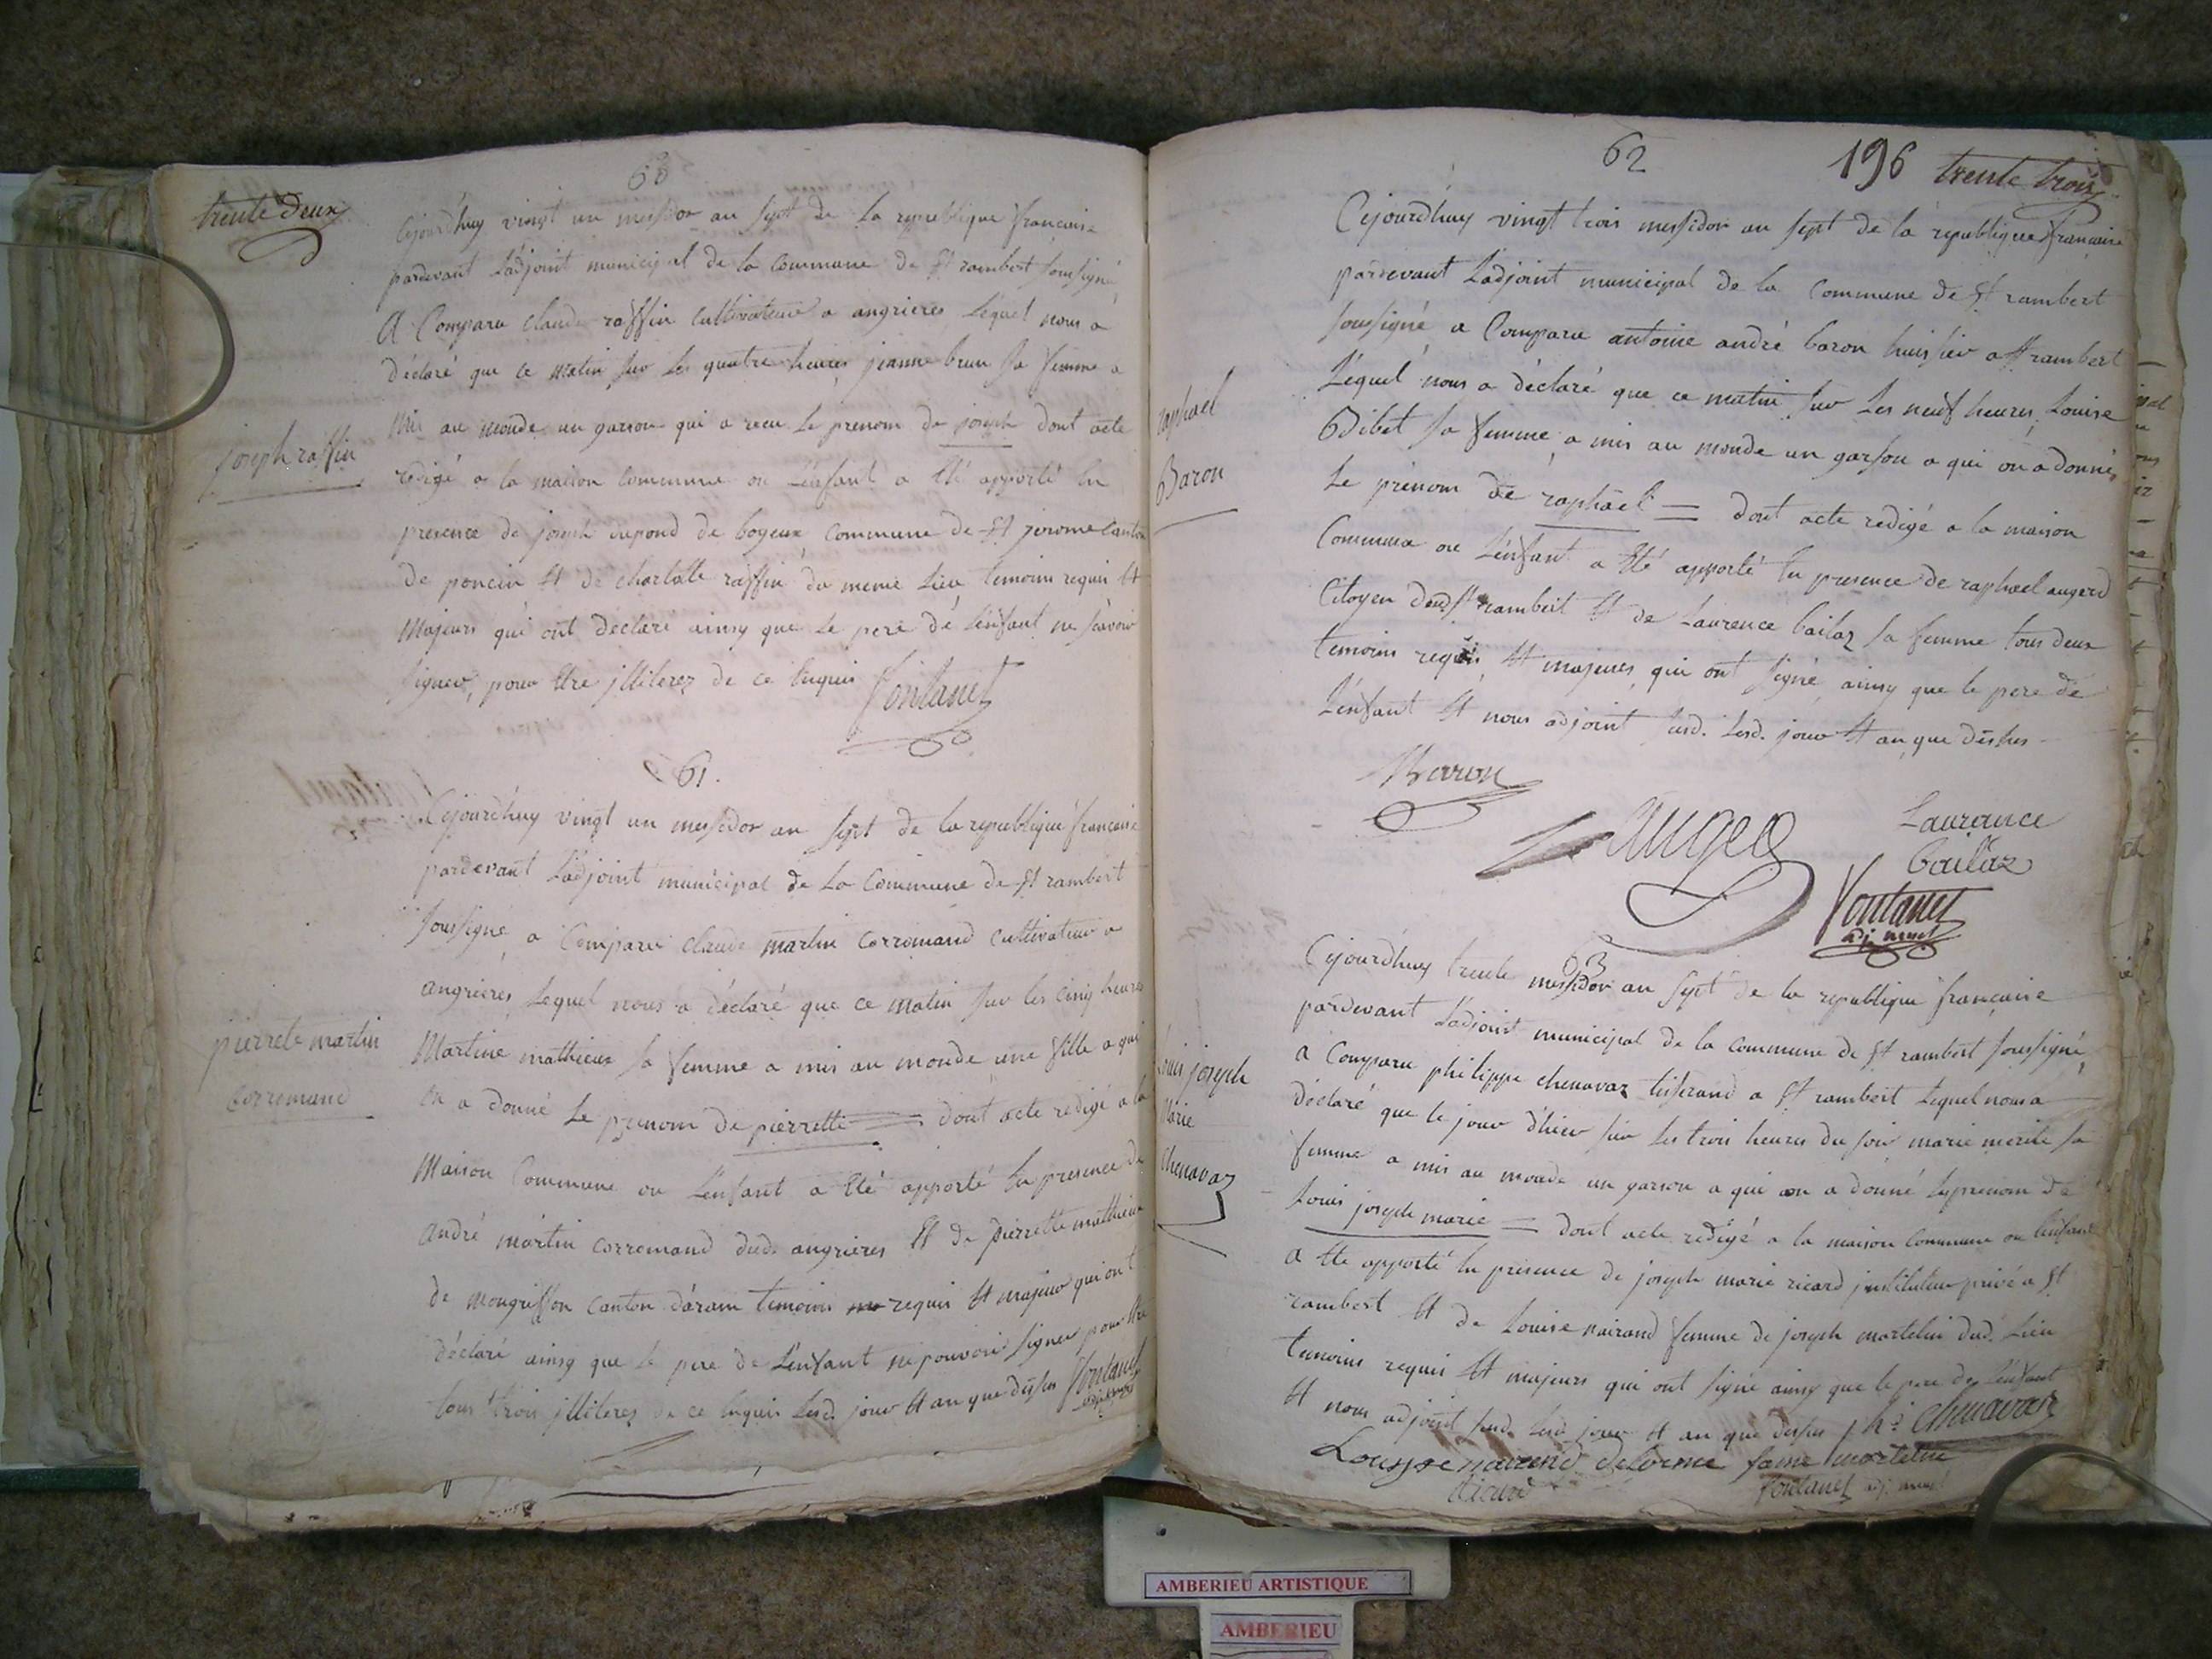 trente deux
60
Cejourd'huy vingt un messidor an sept de la republique francaise
pardevant L'adjoint municipal de la Commune de St rambert soussigné
A Comparu claude raffin cultivateur a angrieres Lequel nous a
déclaré que ce matin sur les quatre heures jeanne brun sa femme a
mis au monde un garson qui a recu le prenom de joseph dont acte
joseph raffin
redigé a la maison commune ou L'enfant a été apporté En
presence de joseph de boyeux commune de St jerome canton
de poncin Et de charlotte raffin du meme lieu temoins requis Et
Majeurs qui ont declaré ainsy que le pere de L'enfant ne scavoir
signer, pour Etre jlliterez de ce Enquis Fontanet
61.
Cejourd'huy vingt un messidor an sept de la republique francaise
pardevant L'adjoint municipal de la Commune de St rambert
soussigné a Comparu claude martin corremand cultivateur a
angrieres Lequel nous a déclaré que ce matin sur les cinq heures
Martine mathieux sa femme a mis au monde une fille a qui
pierrete martin
corremand
on a donné Le prenom de pierrette = dont acte redigé a la
Maison Commune ou L'enfant a Eté apporté En presence de
André martin corremand dud. angrieres Et de pierrette mathieux
de mongriffon canton d'aram temoins requis Et majeur qui ont
déclaré ainsy que le pere de L'enfant ne pouvoir signer pour Etre
tous trois jlliterez de ce Enquis Lesd. jour Et an que dessus Fontanet
62
196
trente trois
Cejourd'huy vingt trois messidor an sept de la republique francaise
pardevant L'adjoint municipal de la Commune de St rambert
soussigné a Comparu antoine andré baron huissier a St rambert
Lequel nous a déclaré que ce matin sur Les neuf heures, Louise
raphael
Baron
Bibet sa femme a mis au monde un garson a qui on a donné
Le prenom de raphael = dont acte redigé a la maison
Commune ou L'enfant a Eté apporté En presence de raphael augerd
Citoyen dud. St rambert Et de Laurence bailaz sa femme tous deux
temoins requis Et majeurs qui ont signé ainsy que le pere de
L'enfant Et nous adjoint susd. Lesd. jour Et an que dessus -
Baron
Auged
Laurance
bailaz
Fontanet
adj. munl
63
Cejourd'huy trente messidor an sept de la republique francaise
pardevant L'adjoint municipal de la commune de St rambert soussigné
a Comparu philippe chenavaz tisserand a St rambert Lequel nous a
Louis joseph
Marie
Chenavaz
déclaré que le jour d'hier sur Les trois heures du soir marie merite sa
femme a mis au monde un garson a qui on a donné Le prenom de
Louis joseph marie = dont acte redigé a la maison commune ou l'enfant
a Ete apporté En presence de joseph marie ricard jnstituteur privé a St
rambert Et de Louise nairand femme de joseph martelin dud. Lieu
temoins requis Et majeurs qui ont signé ainsy que le pere de L'enfant
Et nous adjoint susd. Lesd. jour Et an que dessus ph. Chenavaz
fame martelin
ricard
Fontanet adj. mun.
AMBERIEU ARTISTIQUE
AMBERIEU